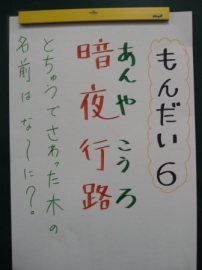 もんだい6
あんや こうろ
暗夜行路
とちゅうでさわった木の
名前はな～に？